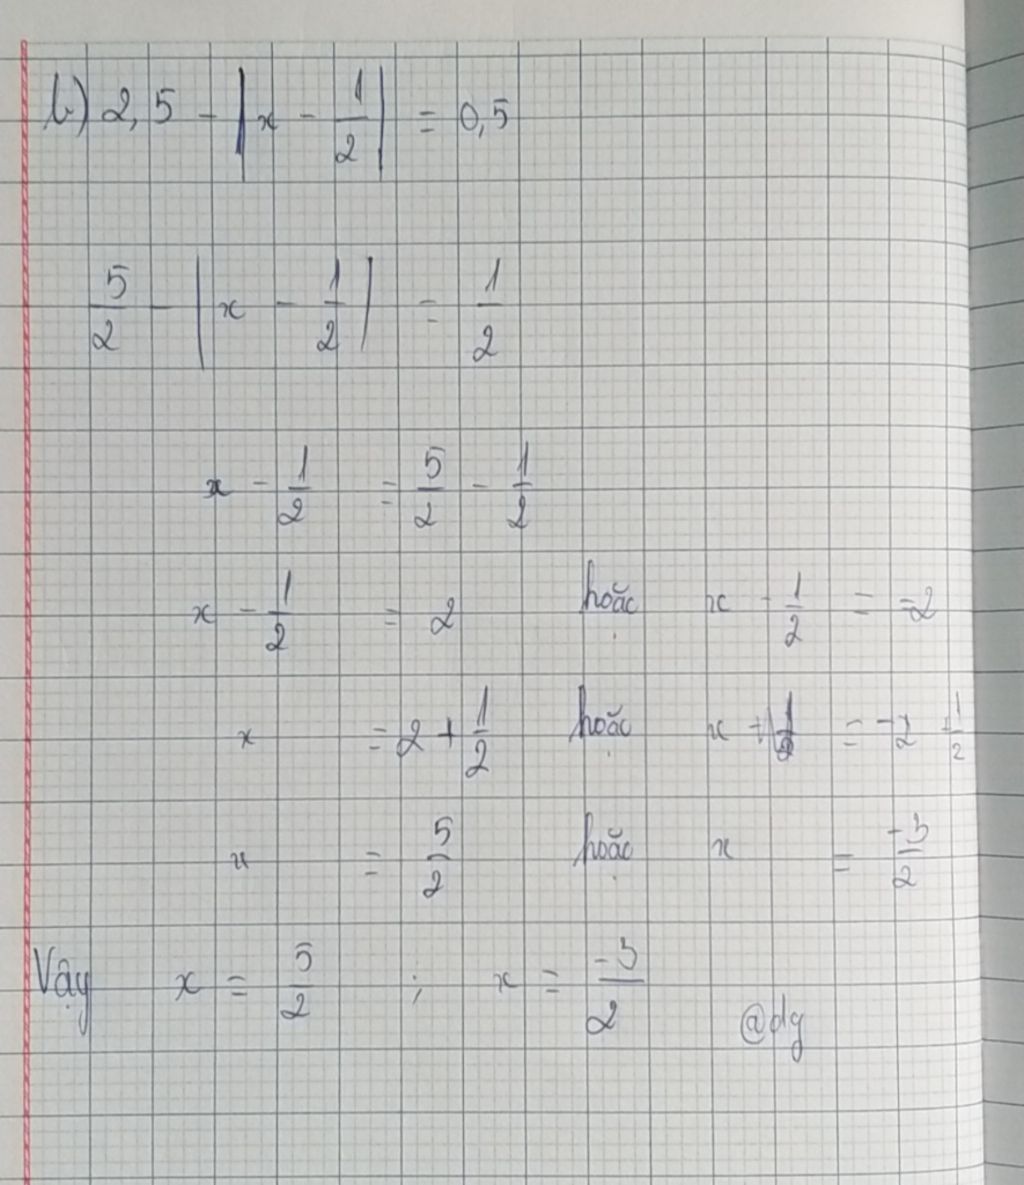 b) 2,5 - |x - 1/2| = 0,5
5/2 - |x - 1/2| = 1/2
x - 1/2 = 5/2 - 1/2
x - 1/2 = 2 hoặc x - 1/2 = -2
x = 2 + 1/2 hoặc x = -2 + 1/2
x = 5/2 hoặc x = -3/2
Vậy x = 5/2 ; x = -3/2
@dg